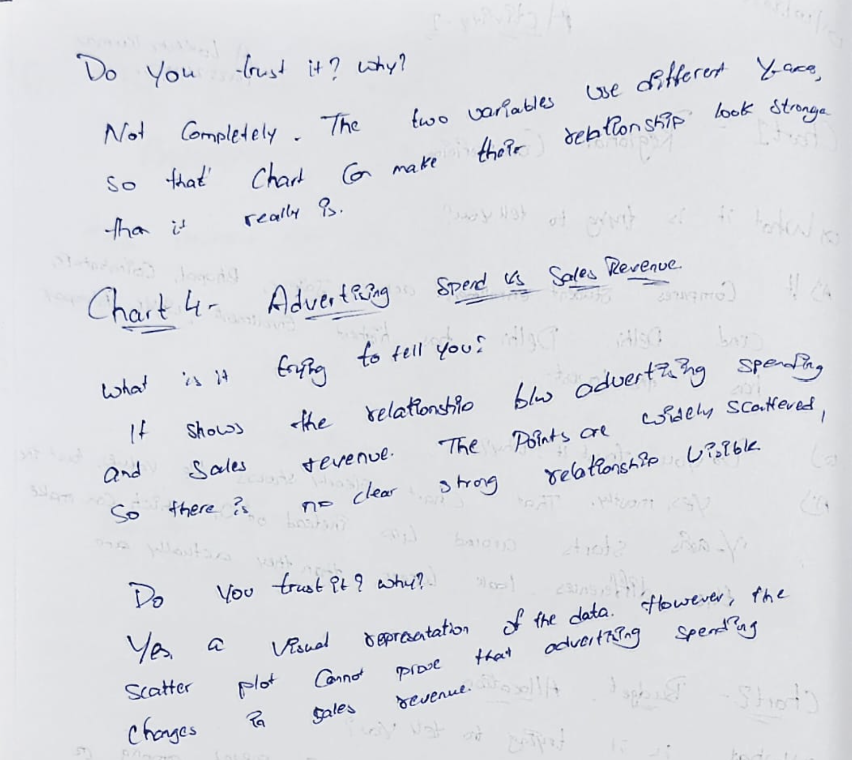 Do you trust it? why?
Not Completely. The two variables use different Y-axes,
so that Chart Can make their relationship look stronger
than it really is.
Chart 4- Advertising Spend vs Sales Revenue.
What is it trying to tell you?
It shows the relationship b/w advertising spending
and sales revenue. The Points are widely scattered,
So there is no clear strong relationship visible.
Do you trust it? why?
Yes, a visual representation of the data. However, the
scatter plot Cannot prove that advertising spending
changes in sales revenue.